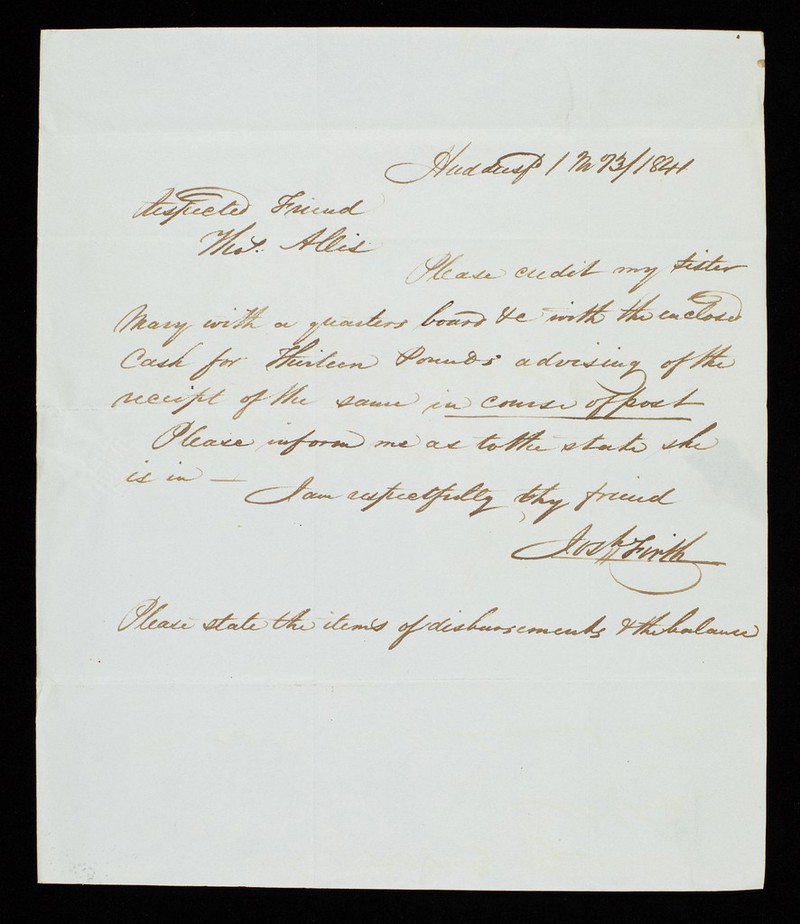 Huddersfd 1 M 23/1841
Respected Friend
Thos. Allis
Please credit my sister
Mary with a quarters board &c with the enclosed
Cash for Thirteen Pounds advising of the
receipt of the same in course of post
Please inform me as to the state she
is in —
I am respectfully thy friend
Josh Firth
Please state the items of disbursements & the balance